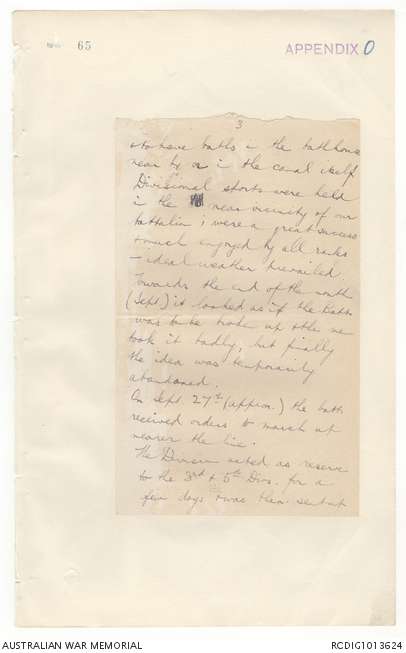 65
APPENDIX O
3
& to have baths in the bathhouse
near by or in the canal itself
Divisional sports were held
in the near vicinity of our
battalion & were a great success
& much enjoyed by all ranks
– ideal weather prevailed.
Towards the end of the month
(Sept) it looked as if the Battn
was to be broken up & the men
took it badly, but finally
the idea was temporarily
abandoned.
On Sept 27th (approx.) the battn
received orders to march up
nearer the line.
The Division acted as reserve
to the 3rd & 5th Divs. for a
few days & was then sent up
AUSTRALIAN WAR MEMORIAL
RCDIG1013624